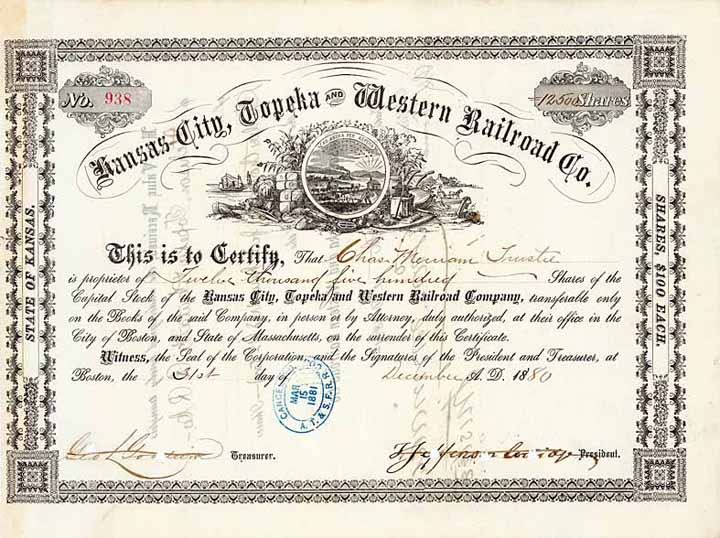 No. 938
12500 Shares
Kansas City, Topeka AND Western Railroad Co.
STATE OF KANSAS.
SHARES, $100 EACH.
This is to Certify, That Chas. Merriam Trustee
is proprietor of Twelve thousand five hundred Shares of the
Capital Stock of the Kansas City, Topeka and Western Railroad Company, transferable only
on the Books of the said Company, in person or by Attorney, duly authorized, at their office in the
City of Boston, and State of Massachusetts, on the surrender of this Certificate.
Witness, the Seal of the Corporation, and the Signatures of the President and Treasurer, at
Boston, the 31st day of December A. D. 1880
MAR
15
1881
A. T. & S. F. R. R. Co.
Treasurer.
T. Jefferson Coolidge President.